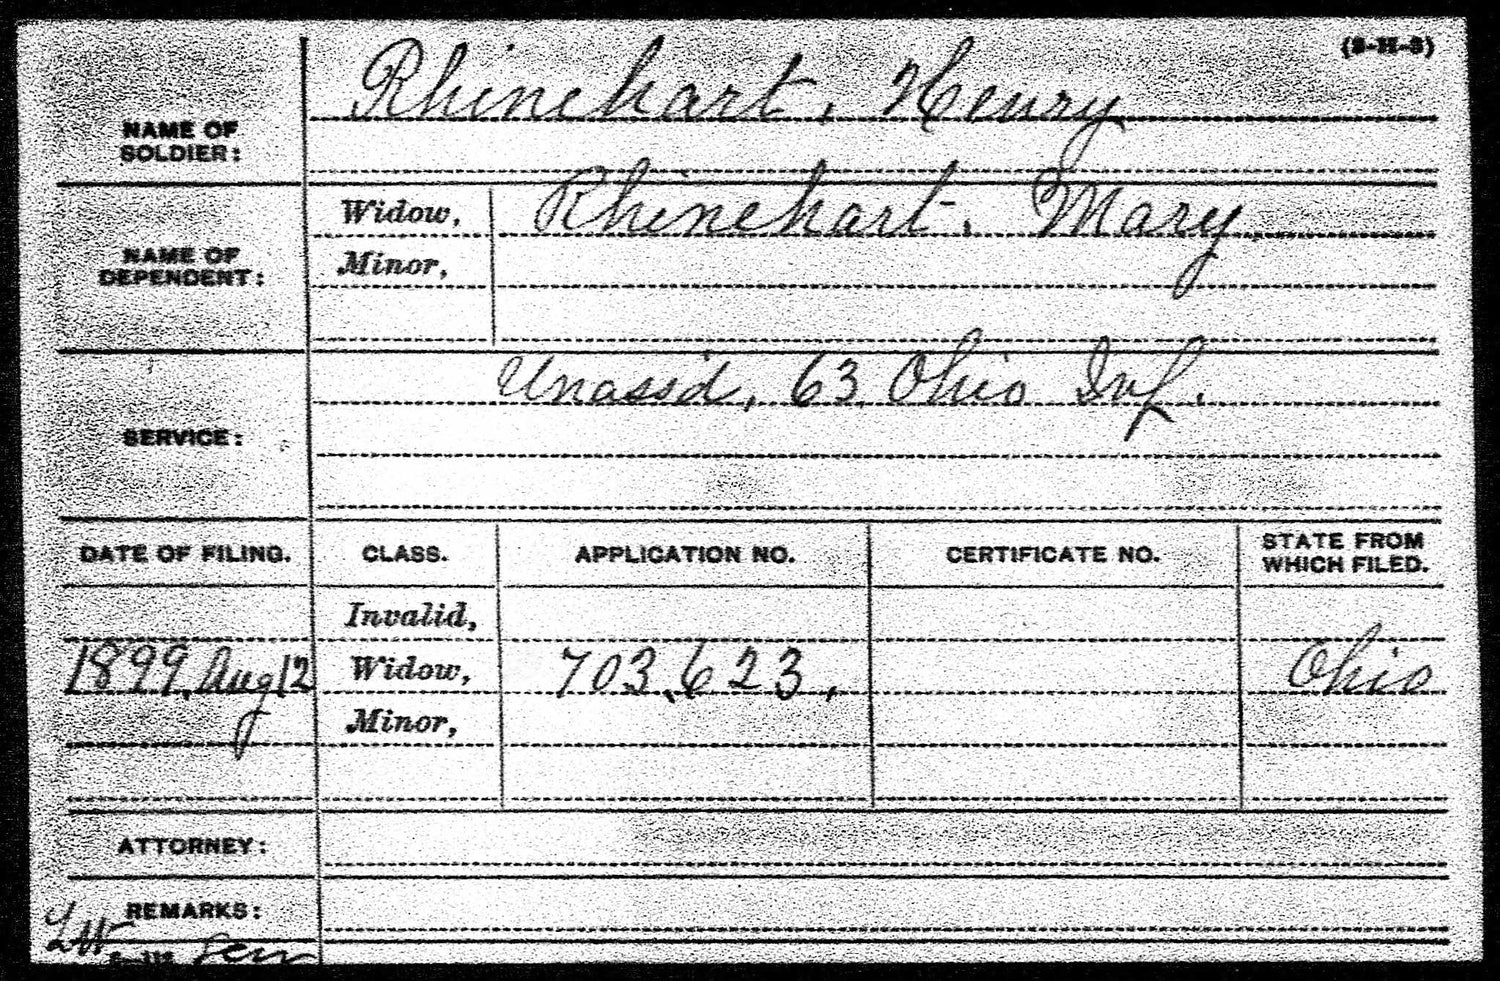 (3-H-3)
NAME OF SOLDIER: Rhinehart, Henry
NAME OF DEPENDENT: Widow, Rhinehart, Mary
Minor,
SERVICE: Unass'd, 63 Ohio Inf.
DATE OF FILING. CLASS. APPLICATION NO. CERTIFICATE NO. STATE FROM WHICH FILED.
Invalid,
1899, Aug 12 Widow, 703,623, Ohio
Minor,
ATTORNEY:
REMARKS: